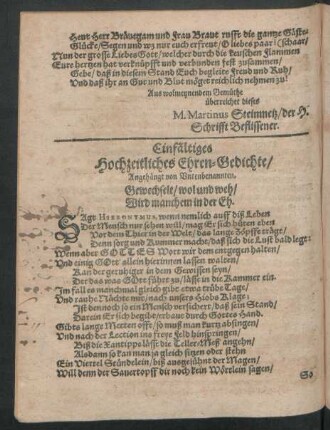 Heut Herr Bräutgam und Frau Braut rufft die gantze Gäste-
Glücke/Segen und wz nur euch erfreut/O liebes paar! (schaar/
Nun der grosse Liebes Gott/welcher durch die keuschen Flammen
Eure hertzen hat verknüpfft und verbunden fest zusammen/
Gebe/daß in diesem Stand Euch begleite Freud und Ruh/
Und daß ihr an Gut und Blut möget reichlich nehmen zu!
Aus wolmeynendem Gemüthe
überreichet dieses
M. Martinus Steinmetz/der H.
Schrifft Beflissener.
Einfältiges
Hochzeitliches Ehren-Gedichte/
Angehängt von Untenbenanten.
Gewechselt/wol und weh/
Wird manchem in der Eh.
SAgt HIERONYMUS, wenn nemlich auff diß Leben
Der Mensch nur sehen will/mag Er sich hüten eben
Vor dem Thier in der Welt/das lange Zöpffe trägt/
Denn sorg und Kummer macht/daß sich die Lust bald legt:
Wenn aber GOTTES Wort wir dem entgegen halten/
Und einig GOtt allein hierinnen lassen walten/
Kan der geruhiger in dem Gewissen seyn/
Der das was GOtt führt zu/lässe in die Kammer ein.
Im fall es manchmal gleich gibt etwa trübe Tage/
Und rauhe Nächte mit/nach unsers Hiobs Klage:
Ist dennoch so ein Mensch versichert/daß sein Stand/
Darein Er sich begibt/rührt durch Gottes Hand.
Gibts lange Metten offt/so muß man kurtz absingen/
Und nach der Lection ins freye Feld hinspringen/
Biß die Xantippe lässt die Teller-Meß angehn/
Alsdann so kan man ja gleich sitzen oder stehn
Ein Viertel Stündelein/biß ausgefühnt der Magen/
Will denn der Sauertopff dir noch kein Wörtlein sagen/
So